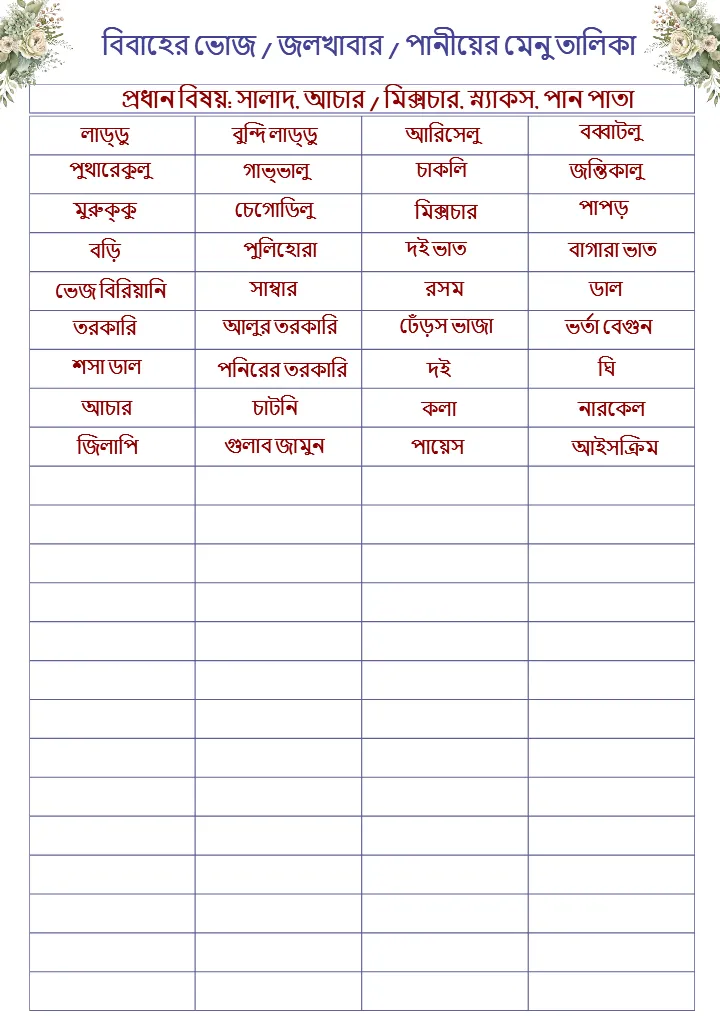 বিবাহের ভোজ / জলখাবার / পানীয়ের মেনু তালিকা
প্রধান বিষয়: সালাদ, আচার / মিক্সচার, স্ন্যাকস, পান পাতা
লাড্ডু বুন্দি লাড্ডু আরিসেলু বব্বাটলু
পুথারেকুলু গাভ্ভালু চাকলি জন্তিকালু
মুরুক্কু চেগোডিলু মিক্সচার পাপড়
বড়ি পুলিহোরা দই ভাত বাগারা ভাত
ভেজ বিরিয়ানি সাম্বার রসম ডাল
তরকারি আলুর তরকারি ঢেঁড়স ভাজা ভর্তা বেগুন
শসা ডাল পনিরের তরকারি দই ঘি
আচার চাটনি কলা নারকেল
জিলাপি গুলাব জামুন পায়েস আইসক্রিম